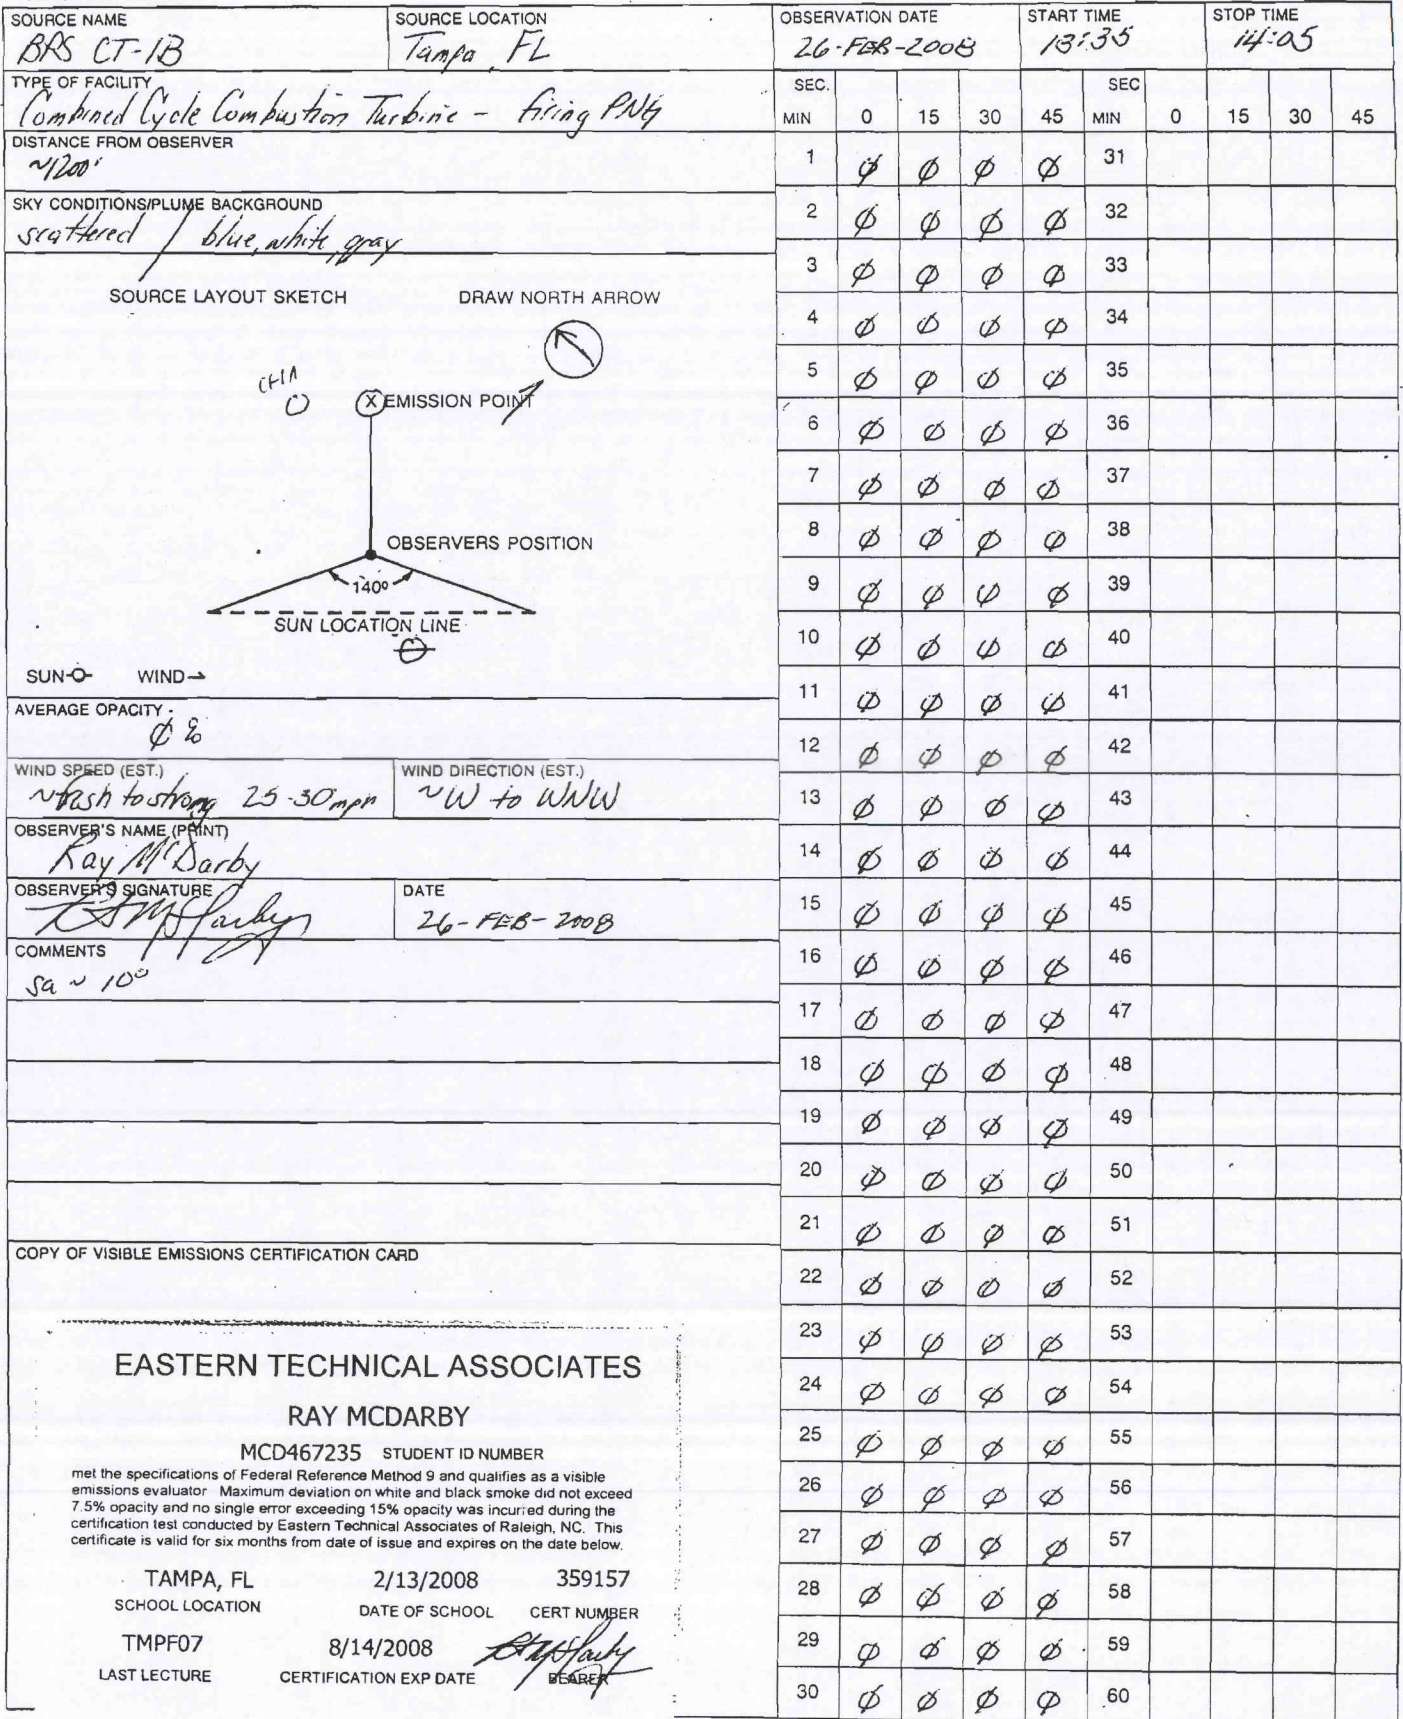 SOURCE NAME
BPS CT-1B
SOURCE LOCATION
Tampa, FL
OBSERVATION DATE
26-FEB-2008
START TIME
13:35
STOP TIME
14:05
TYPE OF FACILITY
Combined Cycle Combustion Turbine - firing PNG
DISTANCE FROM OBSERVER
~1200'
SKY CONDITIONS/PLUME BACKGROUND
scattered / blue, white, gray
SOURCE LAYOUT SKETCH
DRAW NORTH ARROW
CT1A
X EMISSION POINT
OBSERVERS POSITION
140°
SUN LOCATION LINE
SUN WIND
AVERAGE OPACITY
Ø %
WIND SPEED (EST.)
~fresh to strong 25-30 mph
WIND DIRECTION (EST.)
~W to WNW
OBSERVER'S NAME (PRINT)
Ray McDarby
OBSERVER'S SIGNATURE
DATE
26-FEB-2008
COMMENTS
sa ~ 10°
COPY OF VISIBLE EMISSIONS CERTIFICATION CARD
EASTERN TECHNICAL ASSOCIATES
RAY MCDARBY
MCD467235 STUDENT ID NUMBER
met the specifications of Federal Reference Method 9 and qualifies as a visible
emissions evaluator Maximum deviation on white and black smoke did not exceed
7.5% opacity and no single error exceeding 15% opacity was incurred during the
certification test conducted by Eastern Technical Associates of Raleigh, NC. This
certificate is valid for six months from date of issue and expires on the date below.
TAMPA, FL 2/13/2008 359157
SCHOOL LOCATION DATE OF SCHOOL CERT NUMBER
TMPF07 8/14/2008
LAST LECTURE CERTIFICATION EXP DATE BEARER
SEC. SEC
MIN 0 15 30 45 MIN 0 15 30 45
1 Ø Ø Ø Ø 31
2 Ø Ø Ø Ø 32
3 Ø Ø Ø Ø 33
4 Ø Ø Ø Ø 34
5 Ø Ø Ø Ø 35
6 Ø Ø Ø Ø 36
7 Ø Ø Ø Ø 37
8 Ø Ø Ø Ø 38
9 Ø Ø Ø Ø 39
10 Ø Ø Ø Ø 40
11 Ø Ø Ø Ø 41
12 Ø Ø Ø Ø 42
13 Ø Ø Ø Ø 43
14 Ø Ø Ø Ø 44
15 Ø Ø Ø Ø 45
16 Ø Ø Ø Ø 46
17 Ø Ø Ø Ø 47
18 Ø Ø Ø Ø 48
19 Ø Ø Ø Ø 49
20 Ø Ø Ø Ø 50
21 Ø Ø Ø Ø 51
22 Ø Ø Ø Ø 52
23 Ø Ø Ø Ø 53
24 Ø Ø Ø Ø 54
25 Ø Ø Ø Ø 55
26 Ø Ø Ø Ø 56
27 Ø Ø Ø Ø 57
28 Ø Ø Ø Ø 58
29 Ø Ø Ø Ø 59
30 Ø Ø Ø Ø 60